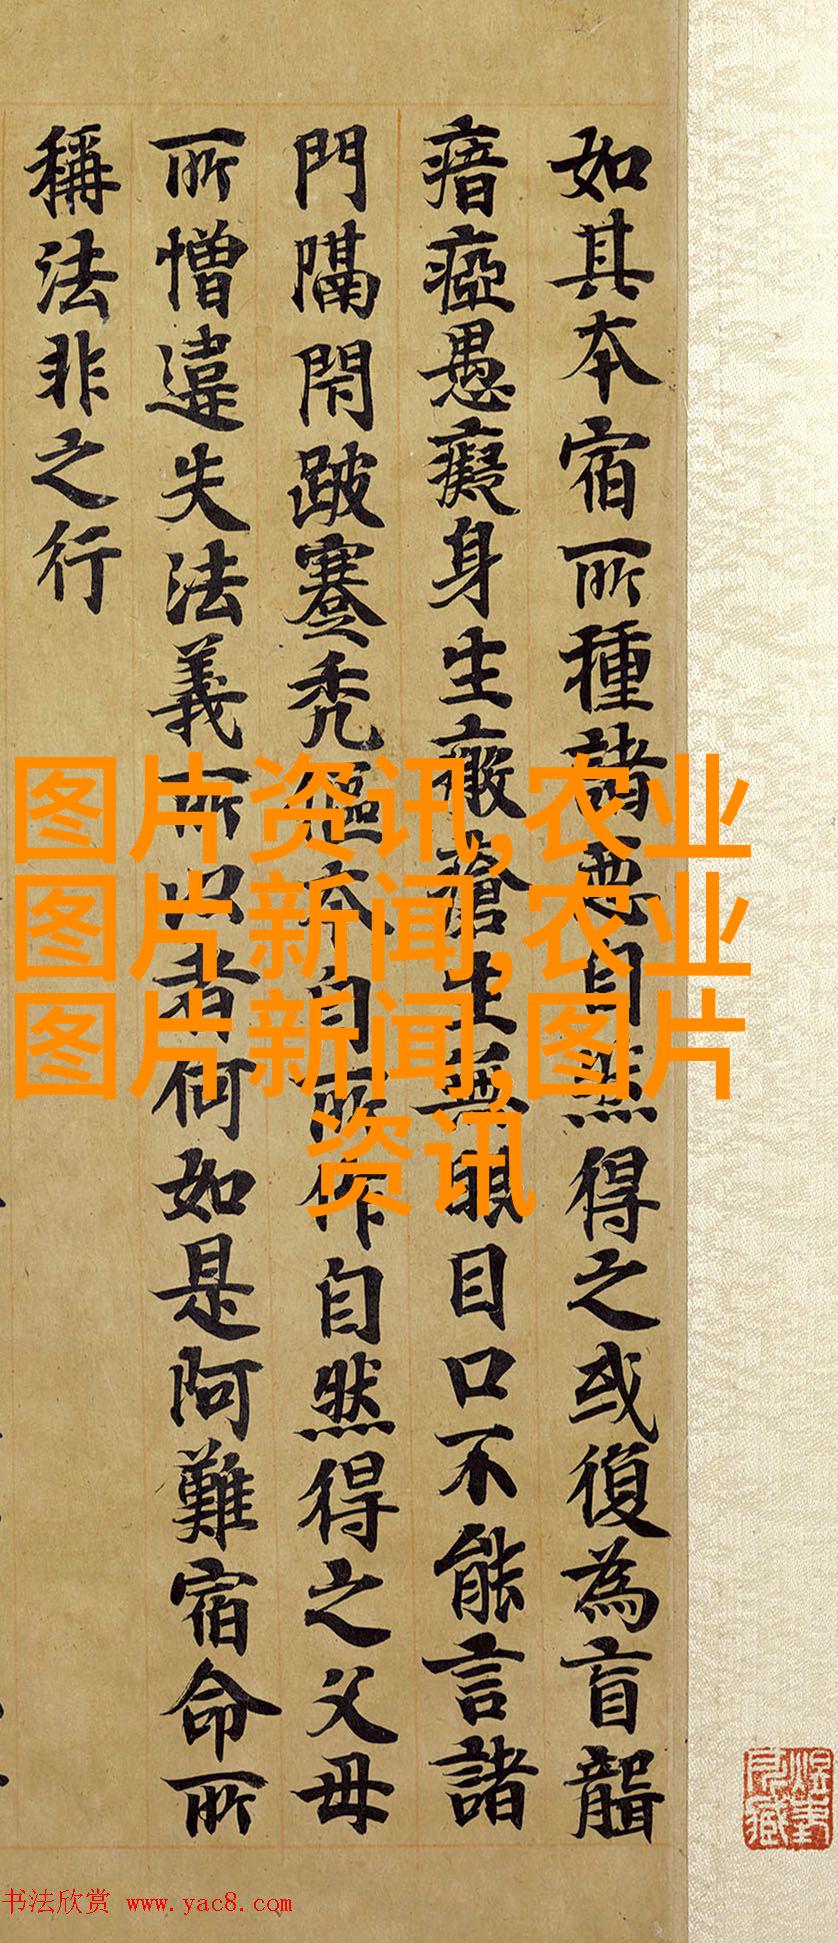 如其本宿所種諸惡自然得之或復為盲聾
瘖瘂愚癡身生瘢瘡生無眼目口不能言諸
門隔閇跛蹇秃傴本自所作自然得之父母
所憎違失法義所以者何如是阿難宿命所
稱法非之行
图片资讯,农业
图片新闻,农业
图片新闻,图片
资讯
书法欣赏 www.yac8.com